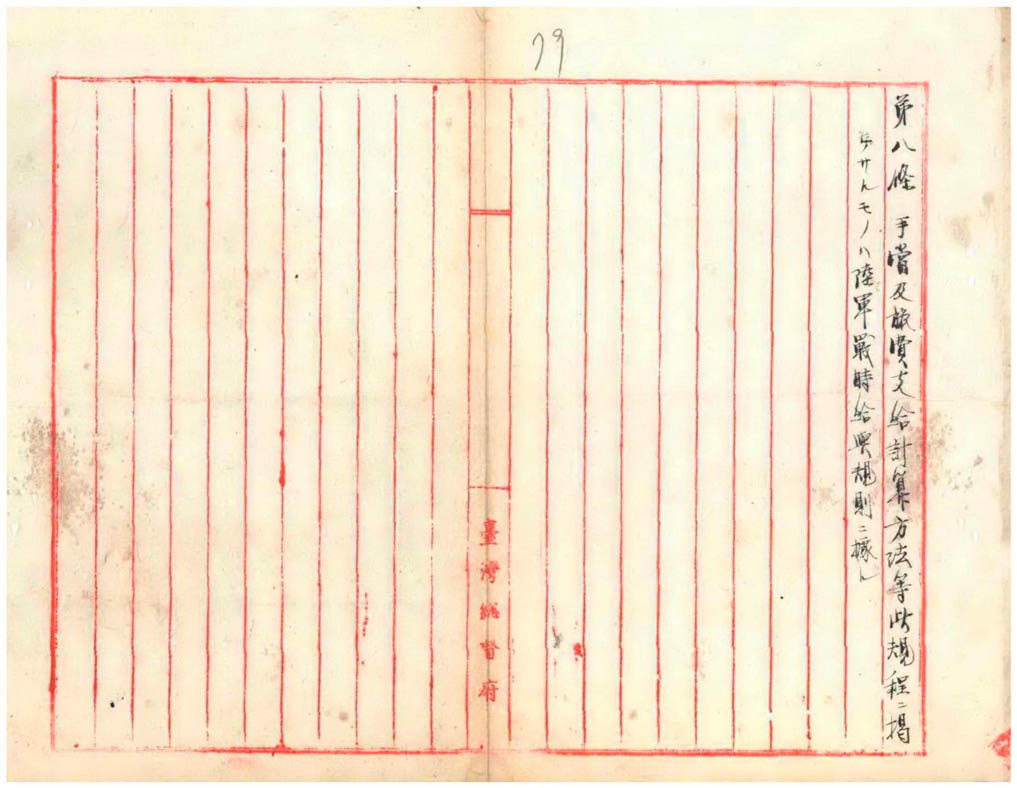 79
第八條 手當及旅費支給計算方法等此規程ニ揭
ケサルモノハ陸軍戰時給與規則ニ據ル
臺灣總督府